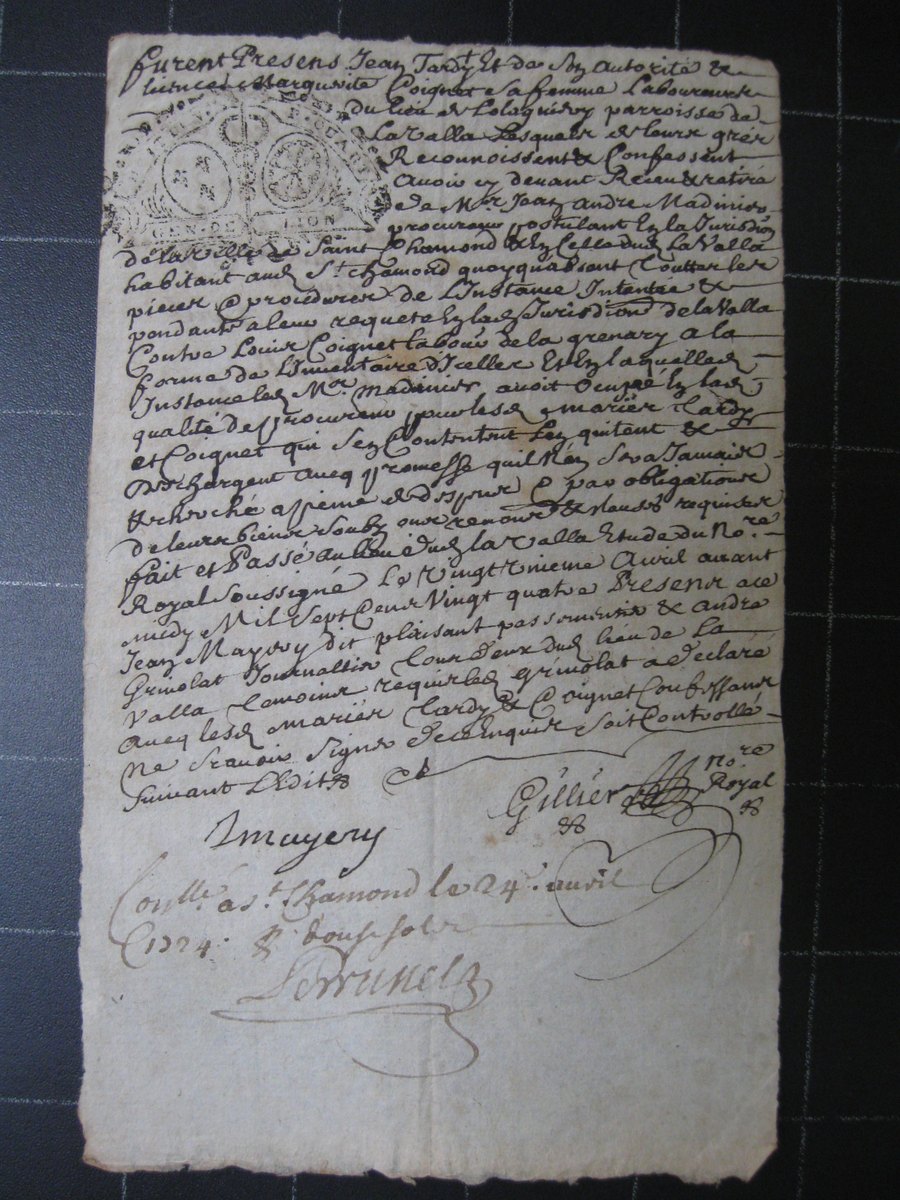 furent Presens Jean Tardy Et de Son autorité &
licence Marguerite Coignet Sa femme Laboureurs
du lieu de parroisse de
La Valla Lesquels de leurs gréz
Reconnoissent & Confessent
avoir cy devant Receu & retiré
de Mr Jean andre Madinier
procureur postulant En la Jurisdion
GEN. DE LION
de la ville de Saint Chamond & En Celle dud. La Valla
habitant aud. St. Chamond quoyqu'absent touttes les
pieces & procedures de L'Instance Intentée &
pendante a leur requete En lad. Jurisdion de la Valla
Contre Louis Coignet labour de la grenary a la
forme de L'Inventaire d'Icelles Et En laquelle
Instance led. Mr. Madinier avoit Ocupé En lad.
qualité de procureur pour lesd. mariéz Tardy
et Coignet qui S'en Contentent L'en quitent &
deschargent avecq promesse quil N'en Sera Jamais
recherché a peine de despens & par obligations
de leurs biens Soubz renon &
fait et Passé au lieu dud. la Valla Etude du Nore.
Royal Soussigné Le Vingt avril avant
midy Mil Sept Cens Vingt quatre Presens a ce
Jean Mayery dit plaisant passementier & andre
Grivolat Journallier tous deux dud. lieu de La
Valla temoins requis led. Grivolat a declaré
avecq lesd. mariéz Tardy & Coignet Confessans
ne Sçavoir Signer de ce Enquis Soit Controllé
Suivant L'Edit
Gillier nore
Royal
Jmayery
Conllé. a St. Chamond le 24e. avril
1724. R douse sols